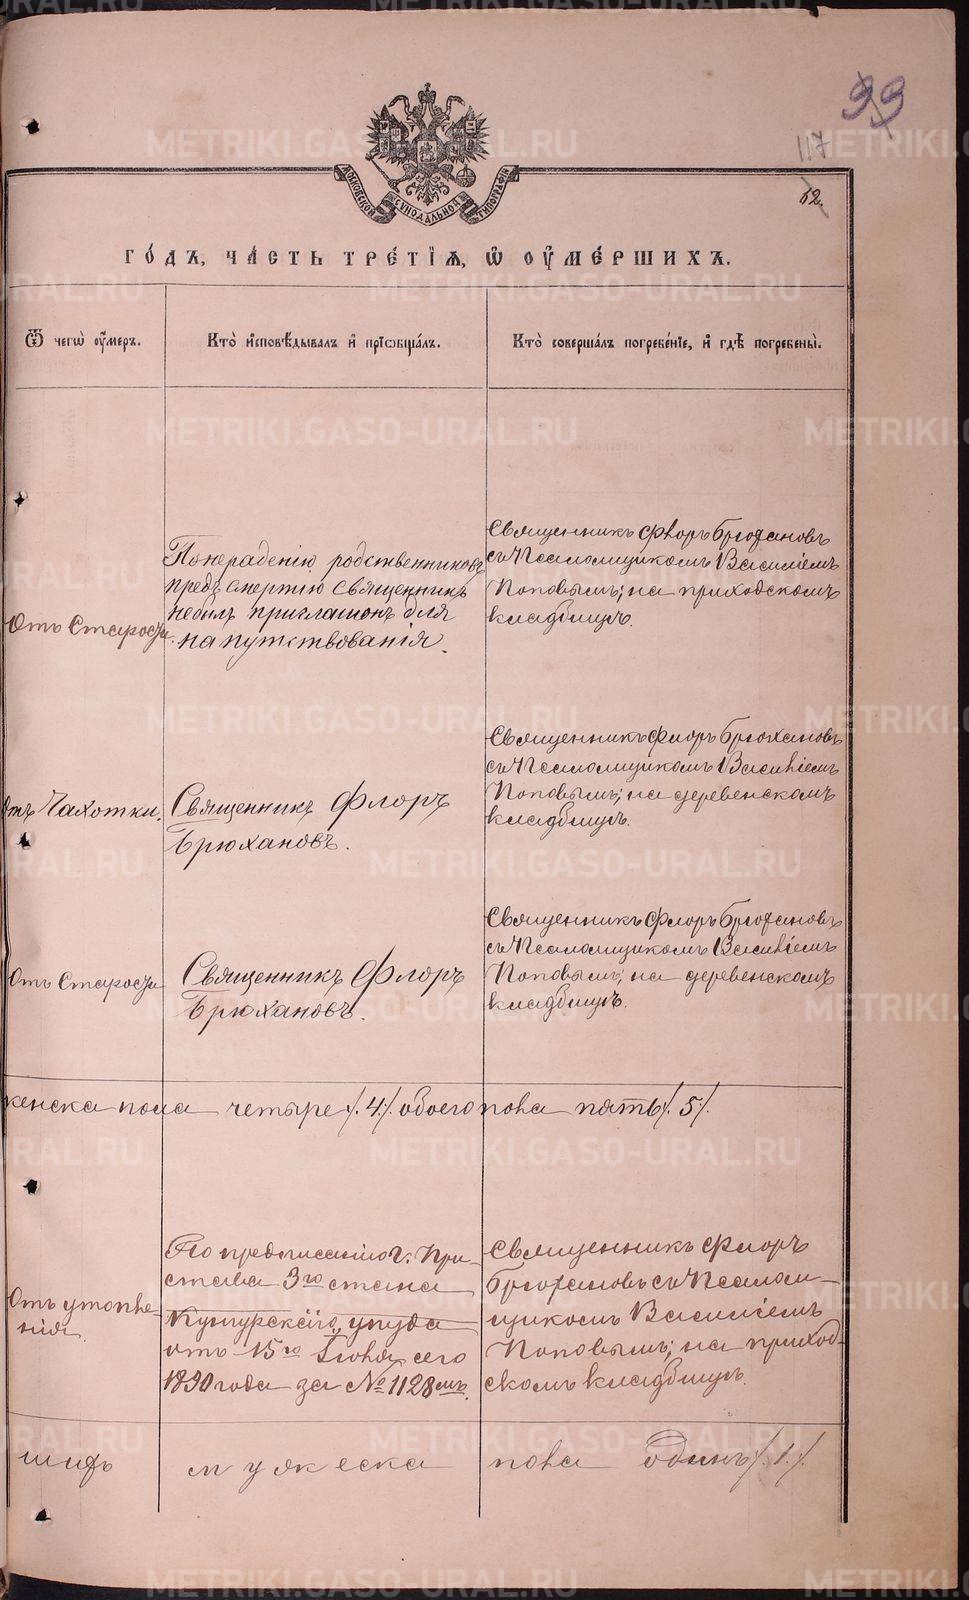 99
117
52.
МОСКОВСКОЙ СѴНОДАЛЬНОЙ ТИПОГРАФІИ
ГО́ДЪ, ЧА́СТЬ ТРЕ́ТІѦ, Ѡ҆ ОУ҆МЕ́РШИХЪ.
Ѿ чегѡ̀ оу҆́меръ.
Кто̀ и҆сповѣ́дывалъ и҆ прїѡбща́лъ.
Кто̀ соверша́лъ погребе́нїе, и҆ гдѣ̀ погребены̀.
Отъ Старости
По нерадению родственниковъ
предъ смертию Священникъ
небылъ приглашонъ для
напутствованія.
Священникъ Флоръ Брюхановъ
съ Псаломщикомъ Василіемъ
Поповымъ; на приходскомъ
кладбищѣ.
Отъ Чахотки.
Священникъ Флоръ
Брюхановъ.
Священникъ Флоръ Брюхановъ
съ Псаломщикомъ Василіемъ
Поповымъ; на деревенскомъ
кладбищѣ.
Отъ Старости
Священникъ Флоръ
Брюхановъ.
Священникъ Флоръ Брюхановъ
съ Псаломщикомъ Василіемъ
Поповымъ; на деревенскомъ
кладбищѣ.
женска пола четыре /.4./. обоего пола пять /.5./.
Отъ утопле-
нія.
По предписанію г. При-
става 3го стана
уѣзда
отъ 15го Іюня сего
1890 года за № 1128мъ.
Священникъ Флоръ
Брюхановъ съ Псалом-
щикомъ Василіемъ
Поповымъ; на приход-
скомъ кладбищѣ.
мужеска пола одинъ /.1./.
METRIKI.GASO-URAL.RU